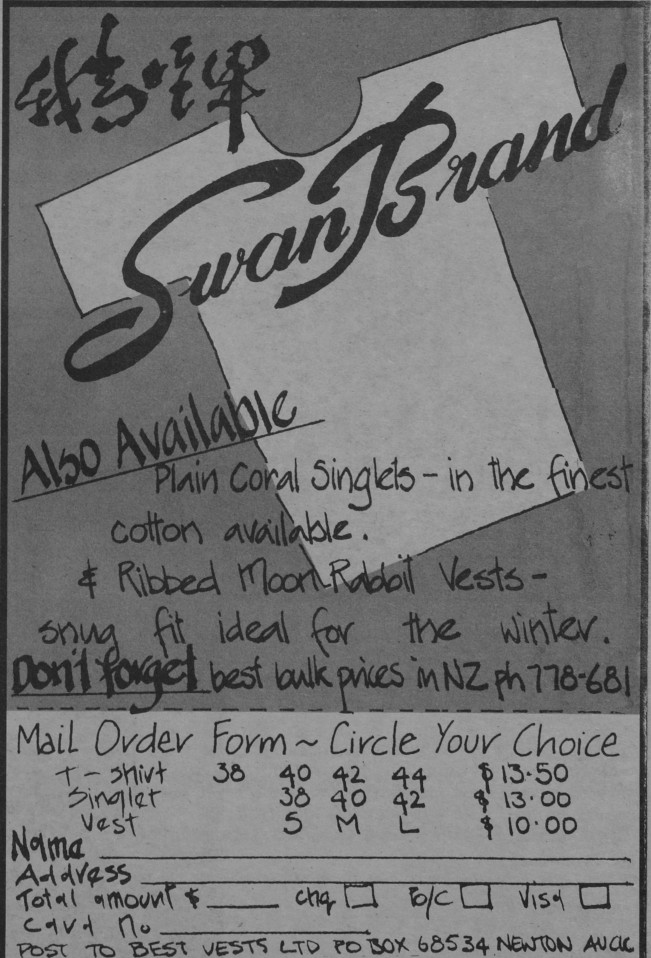 Swan Brand
Also Available
Plain Coral Singlets - in the finest
cotton available.
& Ribbed Moon Rabbit Vests -
snug fit ideal for the winter.
Don't forget best bulk prices in NZ ph 778-681
Mail Order Form ~ Circle Your Choice
T-shirt 38 40 42 44 $13.50
Singlet 38 40 42 $13.00
Vest S M L $10.00
Name
Address
Total amount $ chq B/C Visa
Card no
POST TO BEST VESTS LTD PO BOX 68534 NEWTON AUCK